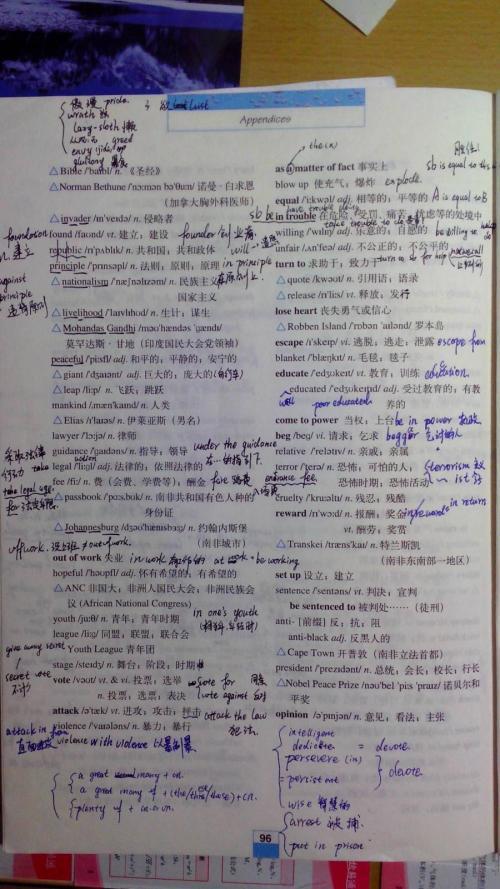 傲慢 pride.
lust
wrath
lazy-sloth 懒
greed
envy
gluttony
Appendices
△Bible /ˈbaɪbl/ n.《圣经》
△Norman Bethune /ˈnɔːmən bəˈθuːn/ 诺曼·白求恩
(加拿大胸外科医师)
△invader /ɪnˈveɪdə/ n. 侵略者
found /faʊnd/ vt. 建立；建设 founder
republic /rɪˈpʌblɪk/ n. 共和国；共和政体
principle /ˈprɪnsəpl/ n. 法则；原则；原理 in principle
△nationalism /ˈnæʃnəlɪzəm/ n. 民族主义；
国家主义
△livelihood /ˈlaɪvlɪhʊd/ n. 生计；谋生
△Mohandas Gandhi /məʊˈhændəs ˈɡændɪ/
莫罕达斯·甘地（印度国民大会党领袖）
peaceful /ˈpiːsfl/ adj. 和平的；平静的；安宁的
△giant /ˈdʒaɪənt/ adj. 巨大的；庞大的
△leap /liːp/ n. 飞跃；跳跃
mankind /mænˈkaɪnd/ n. 人类
△Elias /ɪˈlaɪəs/ n. 伊莱亚斯（男名）
lawyer /ˈlɔːjə/ n. 律师
guidance /ˈɡaɪdəns/ n. 指导；领导 under the guidance
legal /ˈliːɡl/ adj. 法律的；依照法律的
take legal
fee /fiː/ n. 费（会费、学费等）；酬金 entrance fee
△passbook /ˈpɑːsbʊk/ n. 南非共和国有色人种的
身份证
△Johannesburg /dʒəʊˈhænɪsbɜːɡ/ n. 约翰内斯堡
（南非城市）
off work
out of work 失业 in work at work = be working
hopeful /ˈhəʊpfl/ adj. 怀有希望的；有希望的
△ANC 非国大；非洲人国民大会；非洲民族会
议 (African National Congress)
youth /juːθ/ n. 青年；青年时期 in one's youth
league /liːɡ/ 同盟；联盟；联合会
Youth League 青年团
stage /steɪdʒ/ n. 舞台；阶段；时期
vote /vəʊt/ vt. & vi. 投票；选举 vote for
n. 投票；选票；表决 vote against
secret vote
attack /əˈtæk/ vt. 进攻；攻击；抨击 attack the law
violence /ˈvaɪələns/ n. 暴力；暴行
violence with violence
a great many + cn.
a great many of + (the/this/these) + cn.
plenty of + cn. o un.
as a matter of fact 事实上
blow up 使充气；爆炸 explode.
equal /ˈiːkwəl/ adj. 相等的；平等的 A is equal to B
have trouble
sb be in trouble 在危险、受罚、痛苦、忧虑等的处境中
willing /ˈwɪlɪŋ/ adj. 乐意的；自愿的 be willing to
unfair /ˌʌnˈfeə/ adj. 不公正的；不公平的
turn to 求助于；致力于 turn to sb for help
△quote /kwəʊt/ n. 引用语；语录
△release /rɪˈliːs/ vt. 释放；发行
lose heart 丧失勇气或信心
△Robben Island /ˈrɒbən ˈaɪlənd/ 罗本岛
escape /ɪˈskeɪp/ vi. 逃脱；逃走；泄露 escape from
blanket /ˈblæŋkɪt/ n. 毛毯；毯子
educate /ˈedʒʊkeɪt/ vt. 教育；训练 education.
educated /ˈedʒʊkeɪtɪd/ adj. 受过教育的；有教
养的
well poor educated
come to power 当权；上台 be in power
beg /beɡ/ vi. 请求；乞求 beggar
relative /ˈrelətɪv/ n. 亲戚；亲属
terror /ˈterə/ n. 恐怖；可怕的人；terrorism
恐怖时期；恐怖活动
cruelty /ˈkruːəltɪ/ n. 残忍；残酷
reward /rɪˈwɔːd/ n. 报酬；奖金 in return
vt. 酬劳；奖赏
△Transkei /trænsˈkaɪ/ n. 特兰斯凯
（南非东南部一地区）
set up 设立；建立
sentence /ˈsentəns/ vt. 判决；宣判
be sentenced to 被判处……（徒刑）
anti- [前缀] 反；抗；阻
anti-black adj. 反黑人的
△Cape Town 开普敦（南非立法首都）
president /ˈprezɪdənt/ n. 总统；会长；校长；行长
△Nobel Peace Prize /nəʊˈbel ˈpiːs ˈpraɪz/ 诺贝尔和
平奖
opinion /əˈpɪnjən/ n. 意见；看法；主张
intelligent
dedicate = devote.
persevere (in)
= persistent
devote
wise
arrest 逮捕
put in prison
96